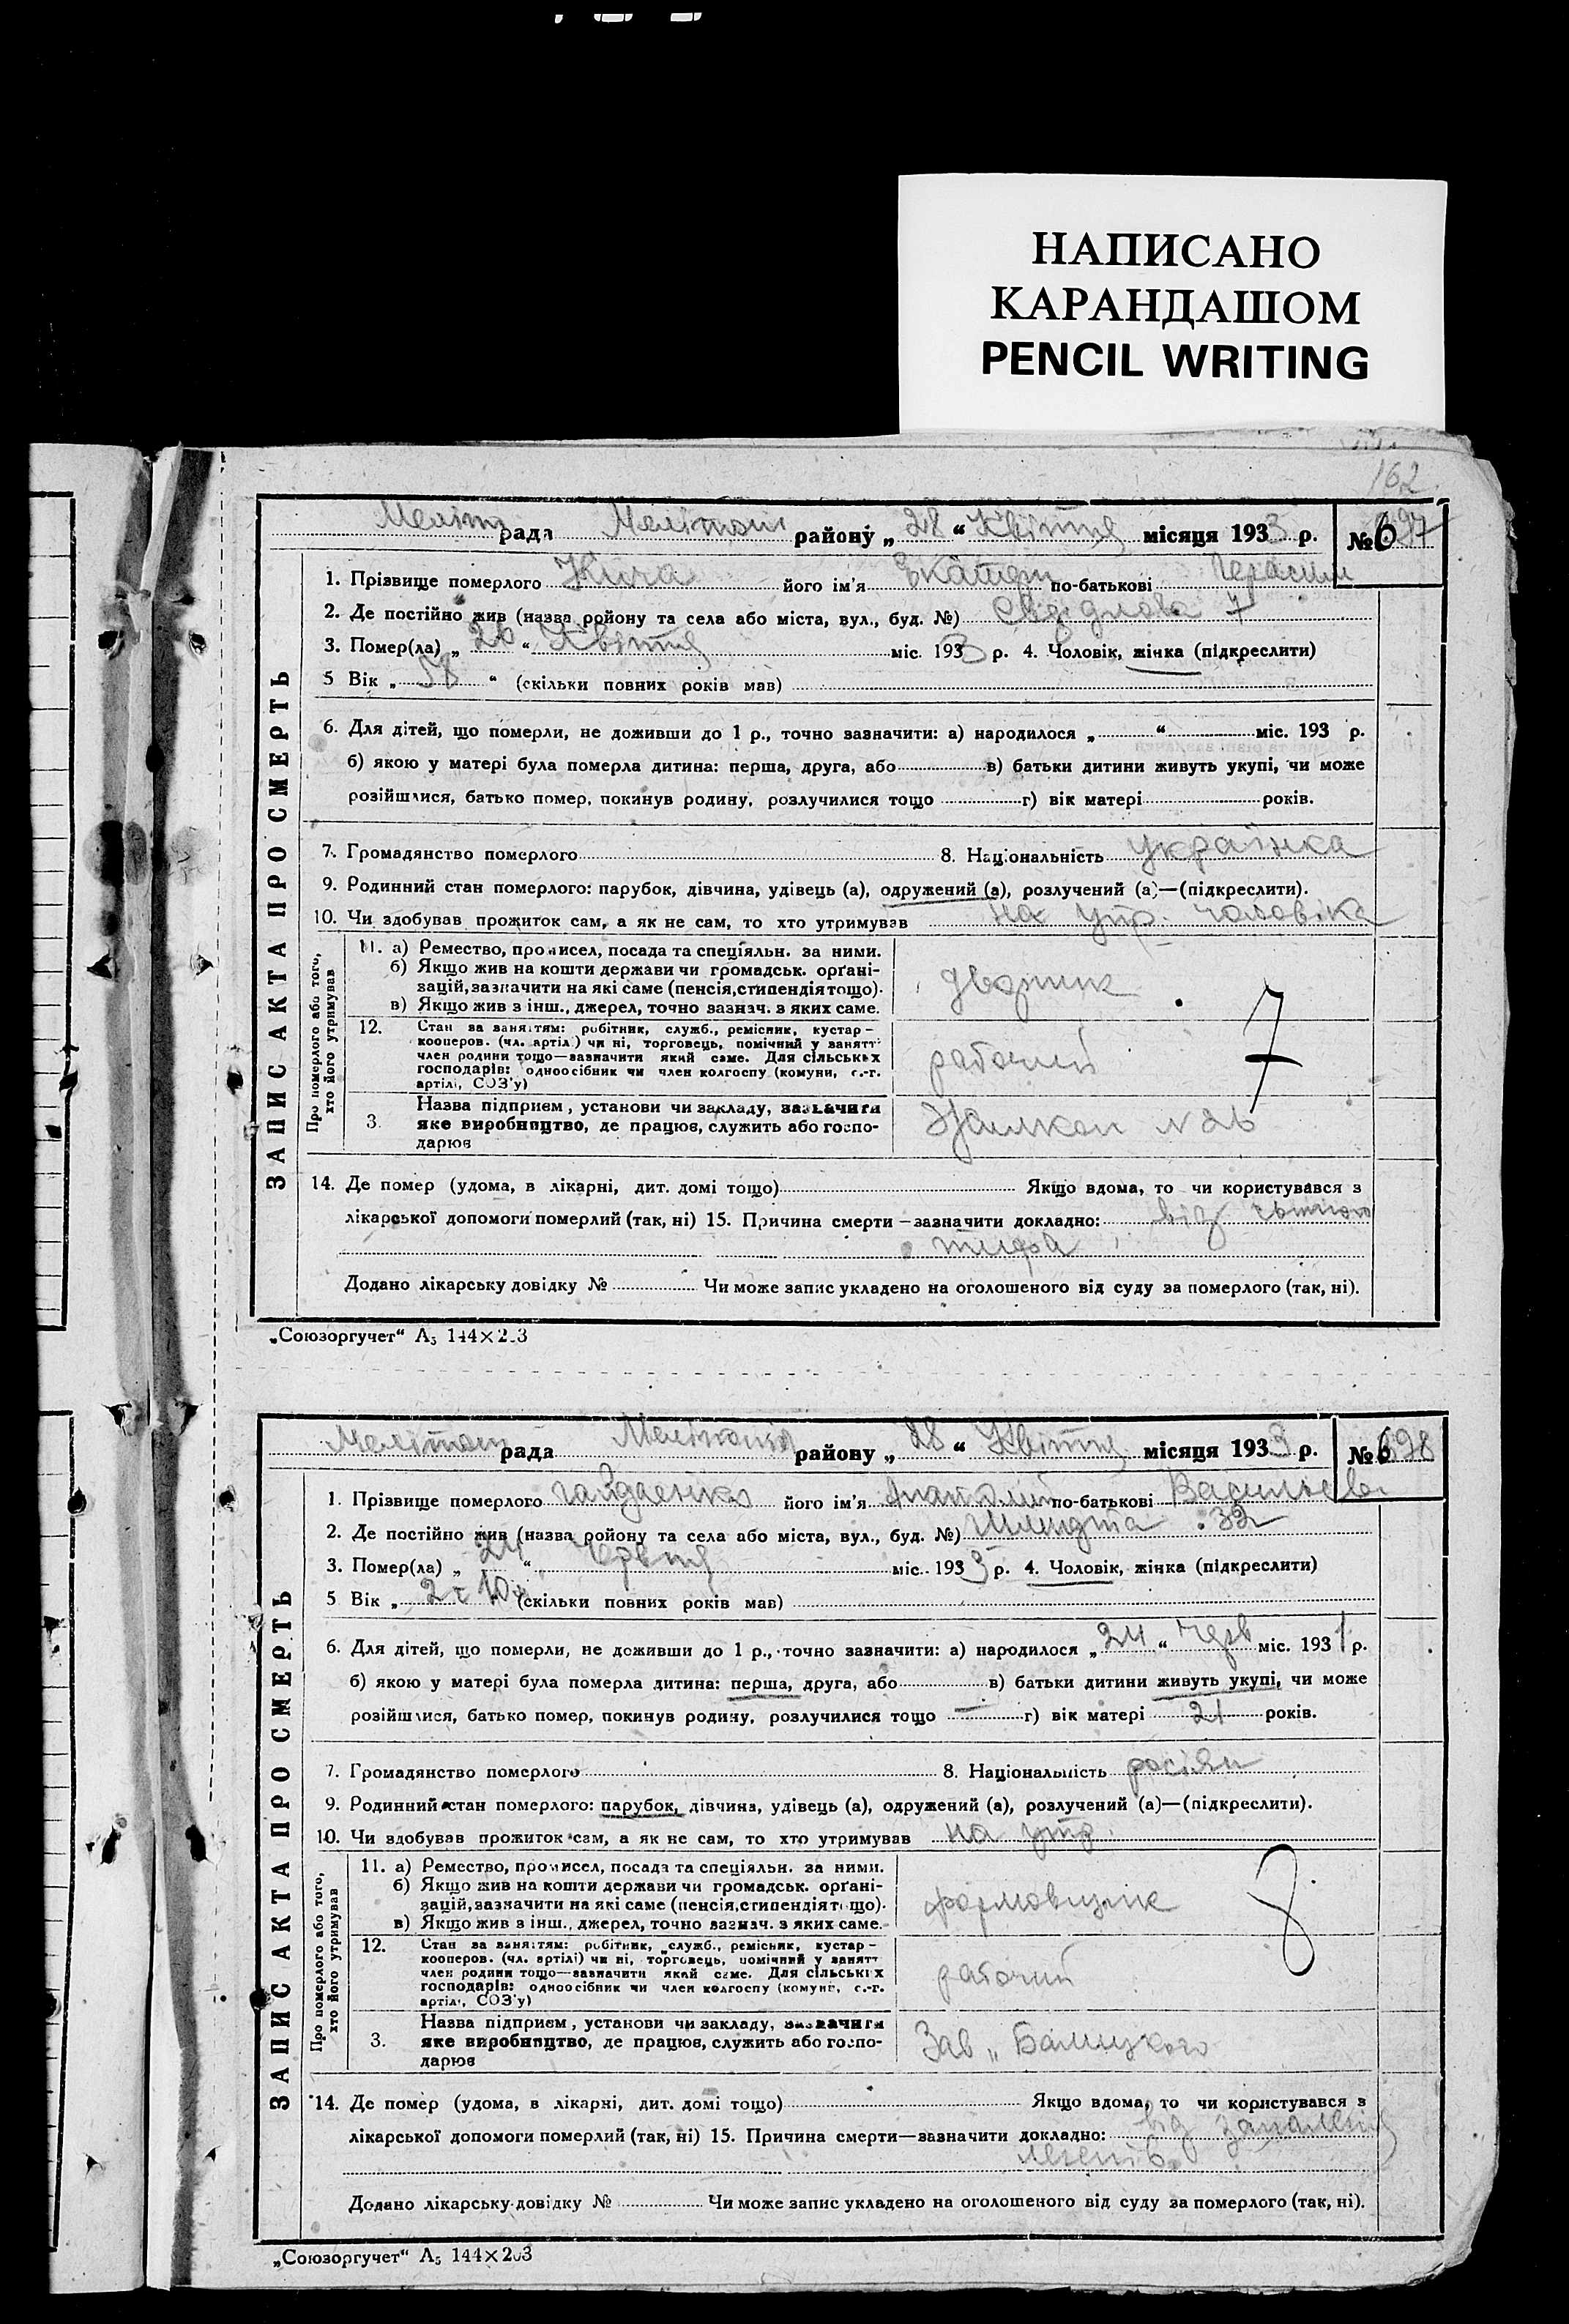 НАПИСАНО
КАРАНДАШОМ
PENCIL WRITING
162
Меліт рада Мелітопол району „ 28 “ Квітня місяця 1933 р. № 697
ЗАПИС АКТА ПРО СМЕРТЬ
1. Прізвище померлого його ім'я Екатер по-батькові Герасим
2. Де постійно жив (назва ройону та села або міста, вул., буд. №) Свердлова 7
3. Помер(ла) „ 26 “ Квітня міс. 1933 р. 4. Чоловік, жінка (підкреслити)
5 Вік „ 58 “ (скільки повних років мав)
6. Для дітей, що померли, не доживши до 1 р., точно зазначити: а) народилося „ “ міс. 193 р.
б) якою у матері була померла дитина: перша, друга, або в) батьки дитини живуть укупі, чи може
розійшлися, батько помер, покинув родину, розлучилися тощо г) вік матері років.
7. Громадянство померлого 8. Національність українка
9. Родинний стан померлого: парубок, дівчина, удівець (а), одружений (а), розлучений (а)—(підкреслити).
10. Чи здобував прожиток сам, а як не сам, то хто утримував на утр. чоловіка
Про померлого або того, хто його утримував
11. а) Ремество, промисел, посада та спеціяльн. за ними.
б) Якщо жив на кошти держави чи громадськ. орґані-
зацій, зазначити на які саме (пенсія, стипендія тощо).
в) Якщо жив з інш., джерел, точно зазнач. з яких саме.
дворник
7
12. Стан за заняттям: робітник, служб., ремісник, кустар—
кооперов. (чл. артілі) чи ні, торговець, помічний у занятт
член родини тощо—зазначити який саме. Для сільських
господарів: одноосібник чи член колгоспу (комуни, с.-г.
артілі, СОЗ'у)
рабочий
3. Назва підприєм, установи чи закладу, зазначити
яке виробництво, де працює, служить або госпо-
дарює
№ 26
14. Де помер (удома, в лікарні, дит. домі тощо) Якщо вдома, то чи користувався з
лікарської допомоги померлий (так, ні) 15. Причина смерти—зазначити докладно: від
тифа
Додано лікарську довідку № Чи може запис укладено на оголошеного від суду за померлого (так, ні).
„Союзоргучет“ А5 144×203
Мелітоп рада Мелітопол району „ 28 “ Квітня місяця 1933 р. № 698
ЗАПИС АКТА ПРО СМЕРТЬ
1. Прізвище померлого Гайдаенко його ім'я Анатолий по-батькові Васильев
2. Де постійно жив (назва ройону та села або міста, вул., буд. №) Шмидта 32
3. Помер(ла) „ 24 “ Червня міс. 1933 р. 4. Чоловік, жінка (підкреслити)
5 Вік „ 2 г 10 м (скільки повних років мав)
6. Для дітей, що померли, не доживши до 1 р., точно зазначити: а) народилося „ 24 “ Черв міс. 1931 р.
б) якою у матері була померла дитина: перша, друга, або в) батьки дитини живуть укупі, чи може
розійшлися, батько помер, покинув родину, розлучилися тощо — г) вік матері 21 років.
7. Громадянство померлого 8. Національність росіян
9. Родинний стан померлого: парубок, дівчина, удівець (а), одружений (а), розлучений (а)—(підкреслити).
10. Чи здобував прожиток сам, а як не сам, то хто утримував на утр.
Про померлого або того, хто його утримував
11. а) Ремество, промисел, посада та спеціяльн. за ними.
б) Якщо жив на кошти держави чи громадськ. орґані-
зацій, зазначити на які саме (пенсія, стипендія тощо).
в) Якщо жив з інш., джерел, точно зазнач. з яких саме.
формовщик
8
12. Стан за заняттям: робітник, служб., ремісник, кустар—
кооперов. (чл. артілі) чи ні, торговець, помічний у занятт
член родини тощо—зазначити який саме. Для сільських
господарів: одноосібник чи член колгоспу (комуни, с.-г.
артілі, СОЗ'у)
рабочий
3. Назва підприєм, установи чи закладу, зазначити
яке виробництво, де працює, служить або госпо-
дарює
Зав „ Балицкого
14. Де помер (удома, в лікарні, дит. домі тощо) Якщо вдома, то чи користувався з
лікарської допомоги померлий (так, ні) 15. Причина смерти—зазначити докладно: від запалення
легенів
Додано лікарську довідку № Чи може запис укладено на оголошеного від суду за померлого (так, ні).
„Союзоргучет“ А5 144×203